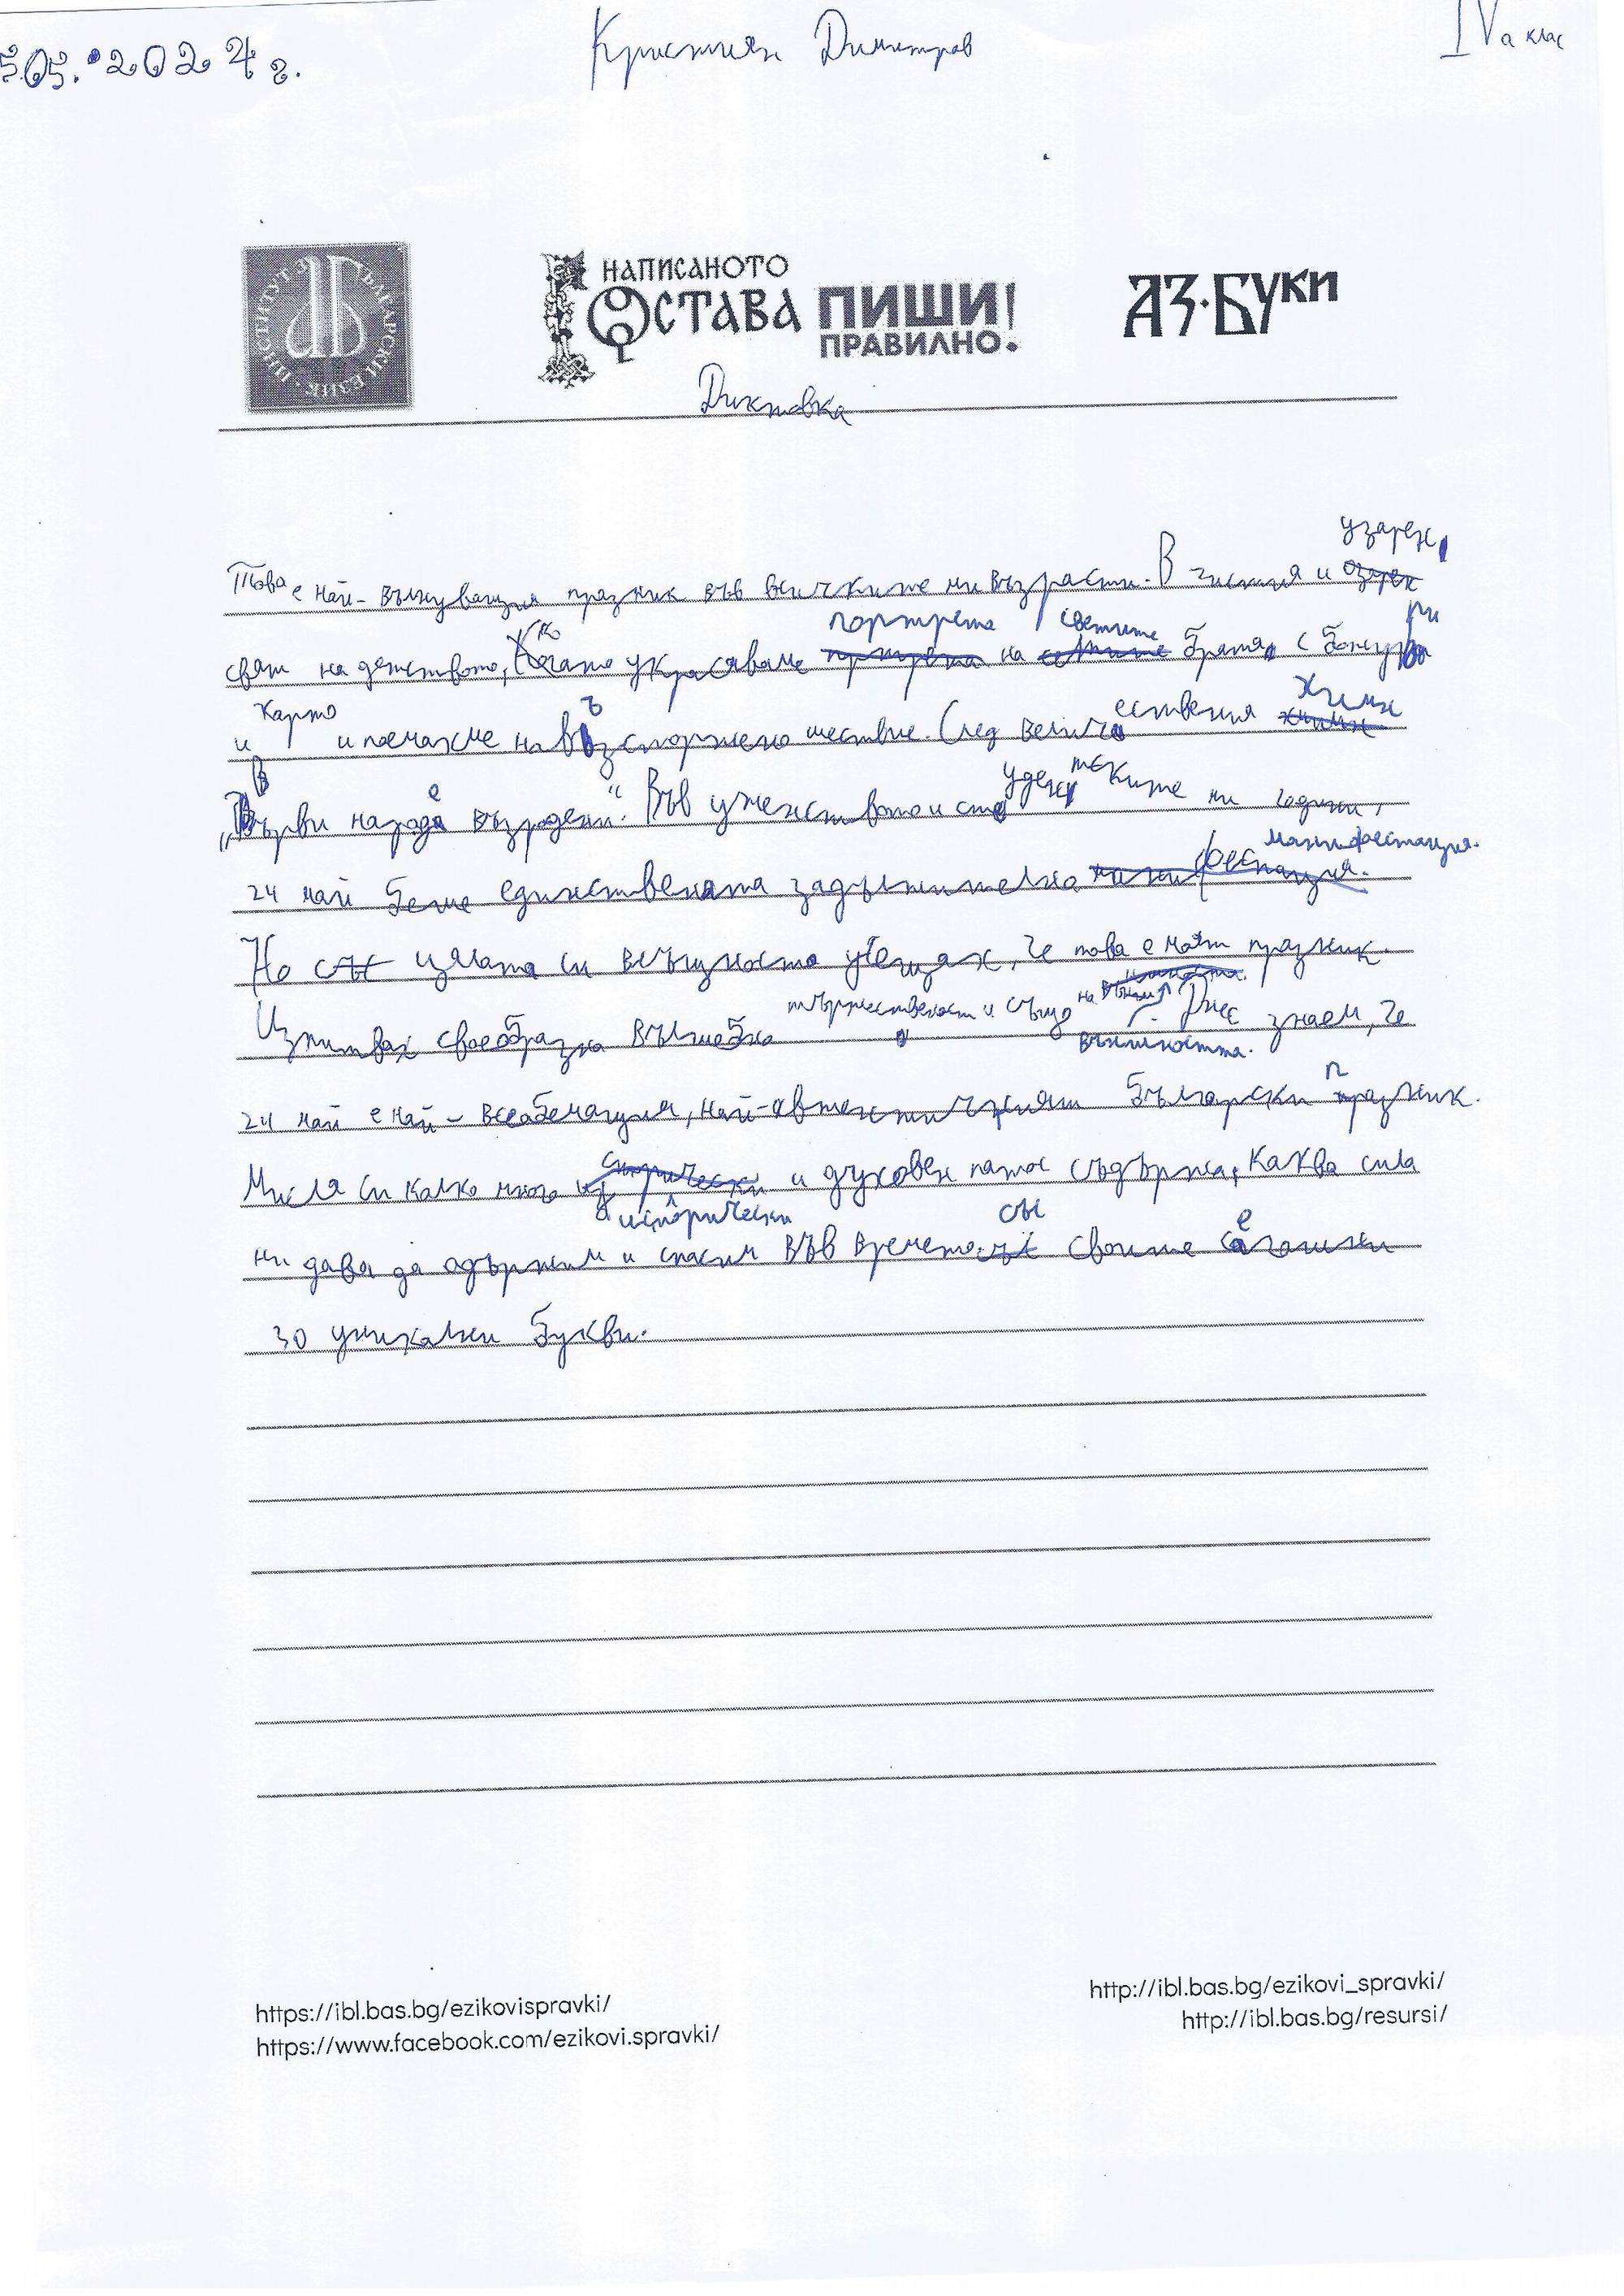 5.05.2024г.
Кристиян Димитров
IV а клас
ИНСТИТУТ ЗА БЪЛГАРСКИ ЕЗИК
НАПИСАНОТО
ОСТАВА
ПИШИ!
ПРАВИЛНО.
АЗ·БУКИ
Диктовка
узарен
Това е най-вълнуващия празник във всичките ни възрасти. В чистия и озарен
портрета светите ри
свят на детството, когато украсяваме на братя с божу
карто и почахме на възторжено шествие. След величествения химн
„Върви народе възродени". Във ученството и студентските ни години,
24 май беше единствената задължителна манифестация.
Но със цялата си всъщноста убещах, че това е моят празник.
Изпитвах своеобразна вълшебна тържественост и също на външността. Днес знаем, че
24 май е най-всеобемащия, най-автентичният български празник.
Мисля си колко много исторически и духовен патос съдържа, каква сила
ни дава да одържим и спасим във времето със своите сегашни
30 уникални букви.
https://ibl.bas.bg/ezikovispravki/
https://www.facebook.com/ezikovi.spravki/
http://ibl.bas.bg/ezikovi_spravki/
http://ibl.bas.bg/resursi/